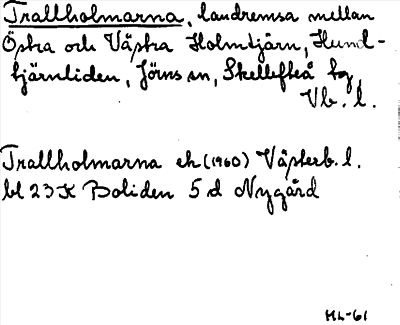 Trallholmarna, landremsa mellan
Östra och Västra Holmtjärn, Hund-
tjärnliden, Jörns sn, Skellefteå tg,
Vb. l.
Trallholmarna ek (1960) Västerb. l.
bl 23 K Boliden 5 d Nygård
ML-61